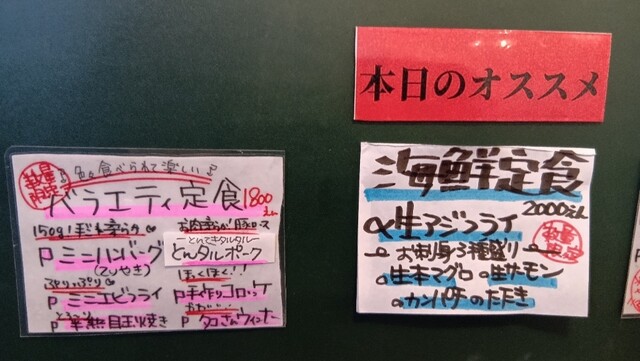 本日のオススメ
数量限定
色々食べられて楽しい♪
バラエティ定食
1800えん
150g!
お肉
豚ロース
P ミニハンバーグ
(てりやき)
—とんてきタルタル—
とんタルポーク
ぷりっぷり
ほくほく!!
P ミニエビフライ
P 手作りコロッケ
とろ〜り
P 半熟目玉焼き
P タコさんウィンナー
海鮮定食
2000えん
生アジフライ
お刺身3種盛り
数量限定
生本マグロ
生サーモン
カンパチのたたき